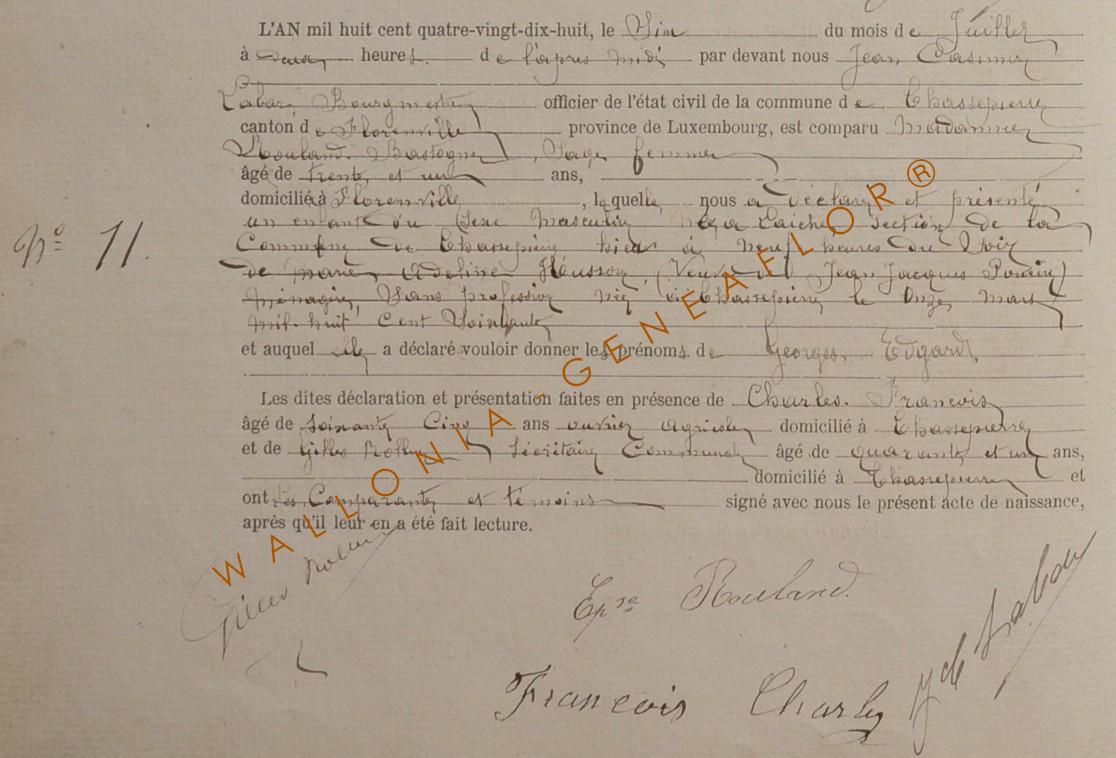 L'AN mil huit cent quatre-vingt-dix-huit, le Six du mois de Juillet
à deux heures de l'après midi par devant nous Jean Casimir
Labar, Bourgmestre officier de l'état civil de la commune de Chassepierre
canton de Florenville province de Luxembourg, est comparu Madame
Rouland. Bastogne, Sage femme
âgé de trente et un ans,
domicilié à Florenville, laquelle nous a déclaré et présenté
un enfant du Sexe masculin, né a Laiche section de la
Commune de Chassepierre hier à neuf heures du Soir
de Adeline Husson (Veuve Jean Jacques Poncin)
ménagère, Sans profession née à Chassepierre, le Onze mars
mil huit Cent Soixante
et auquel elle a déclaré vouloir donner les prénoms de Georges, Edgard,
Les dites déclaration et présentation faites en présence de Charles. Francois
âgé de soixante Cinq ans ouvrier agricole domicilié à Chassepierre
N° 11.
et de Gilles Secrétaire Communal âgé de quarante et un ans,
domicilié à Chassepierre et
ont Les Comparante et témoins signé avec nous le présent acte de naissance,
après qu'il leur en a été fait lecture.
WALLONIA - GENEAFLOR®
Gilles
Epse Rouland
Francois Charles